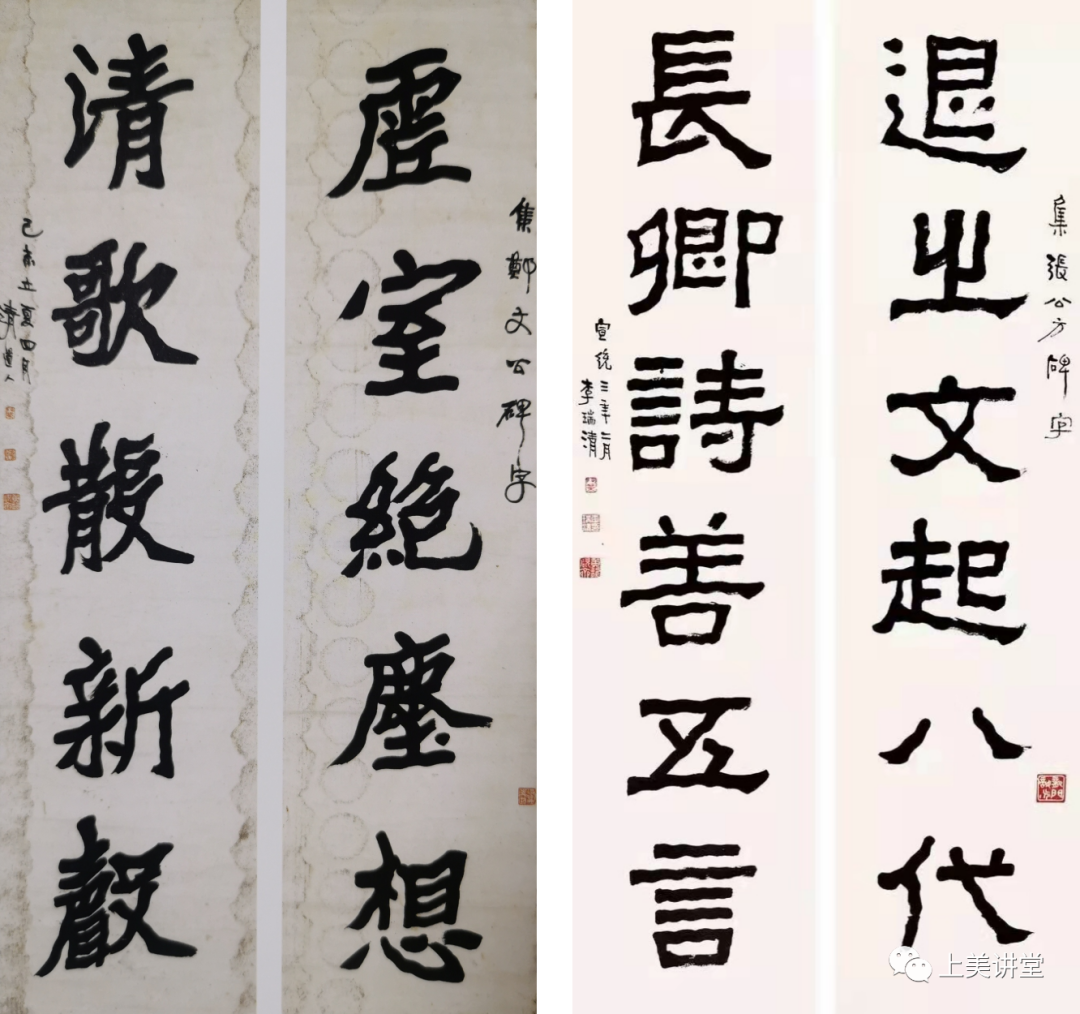 集鄭文公碑字
虛室絕塵想
清歌散新聲
己未立夏四月
清道人
集張公方碑字
退之文起八代
長卿詩善五言
宣統三年二月
李瑞清
上美讲堂